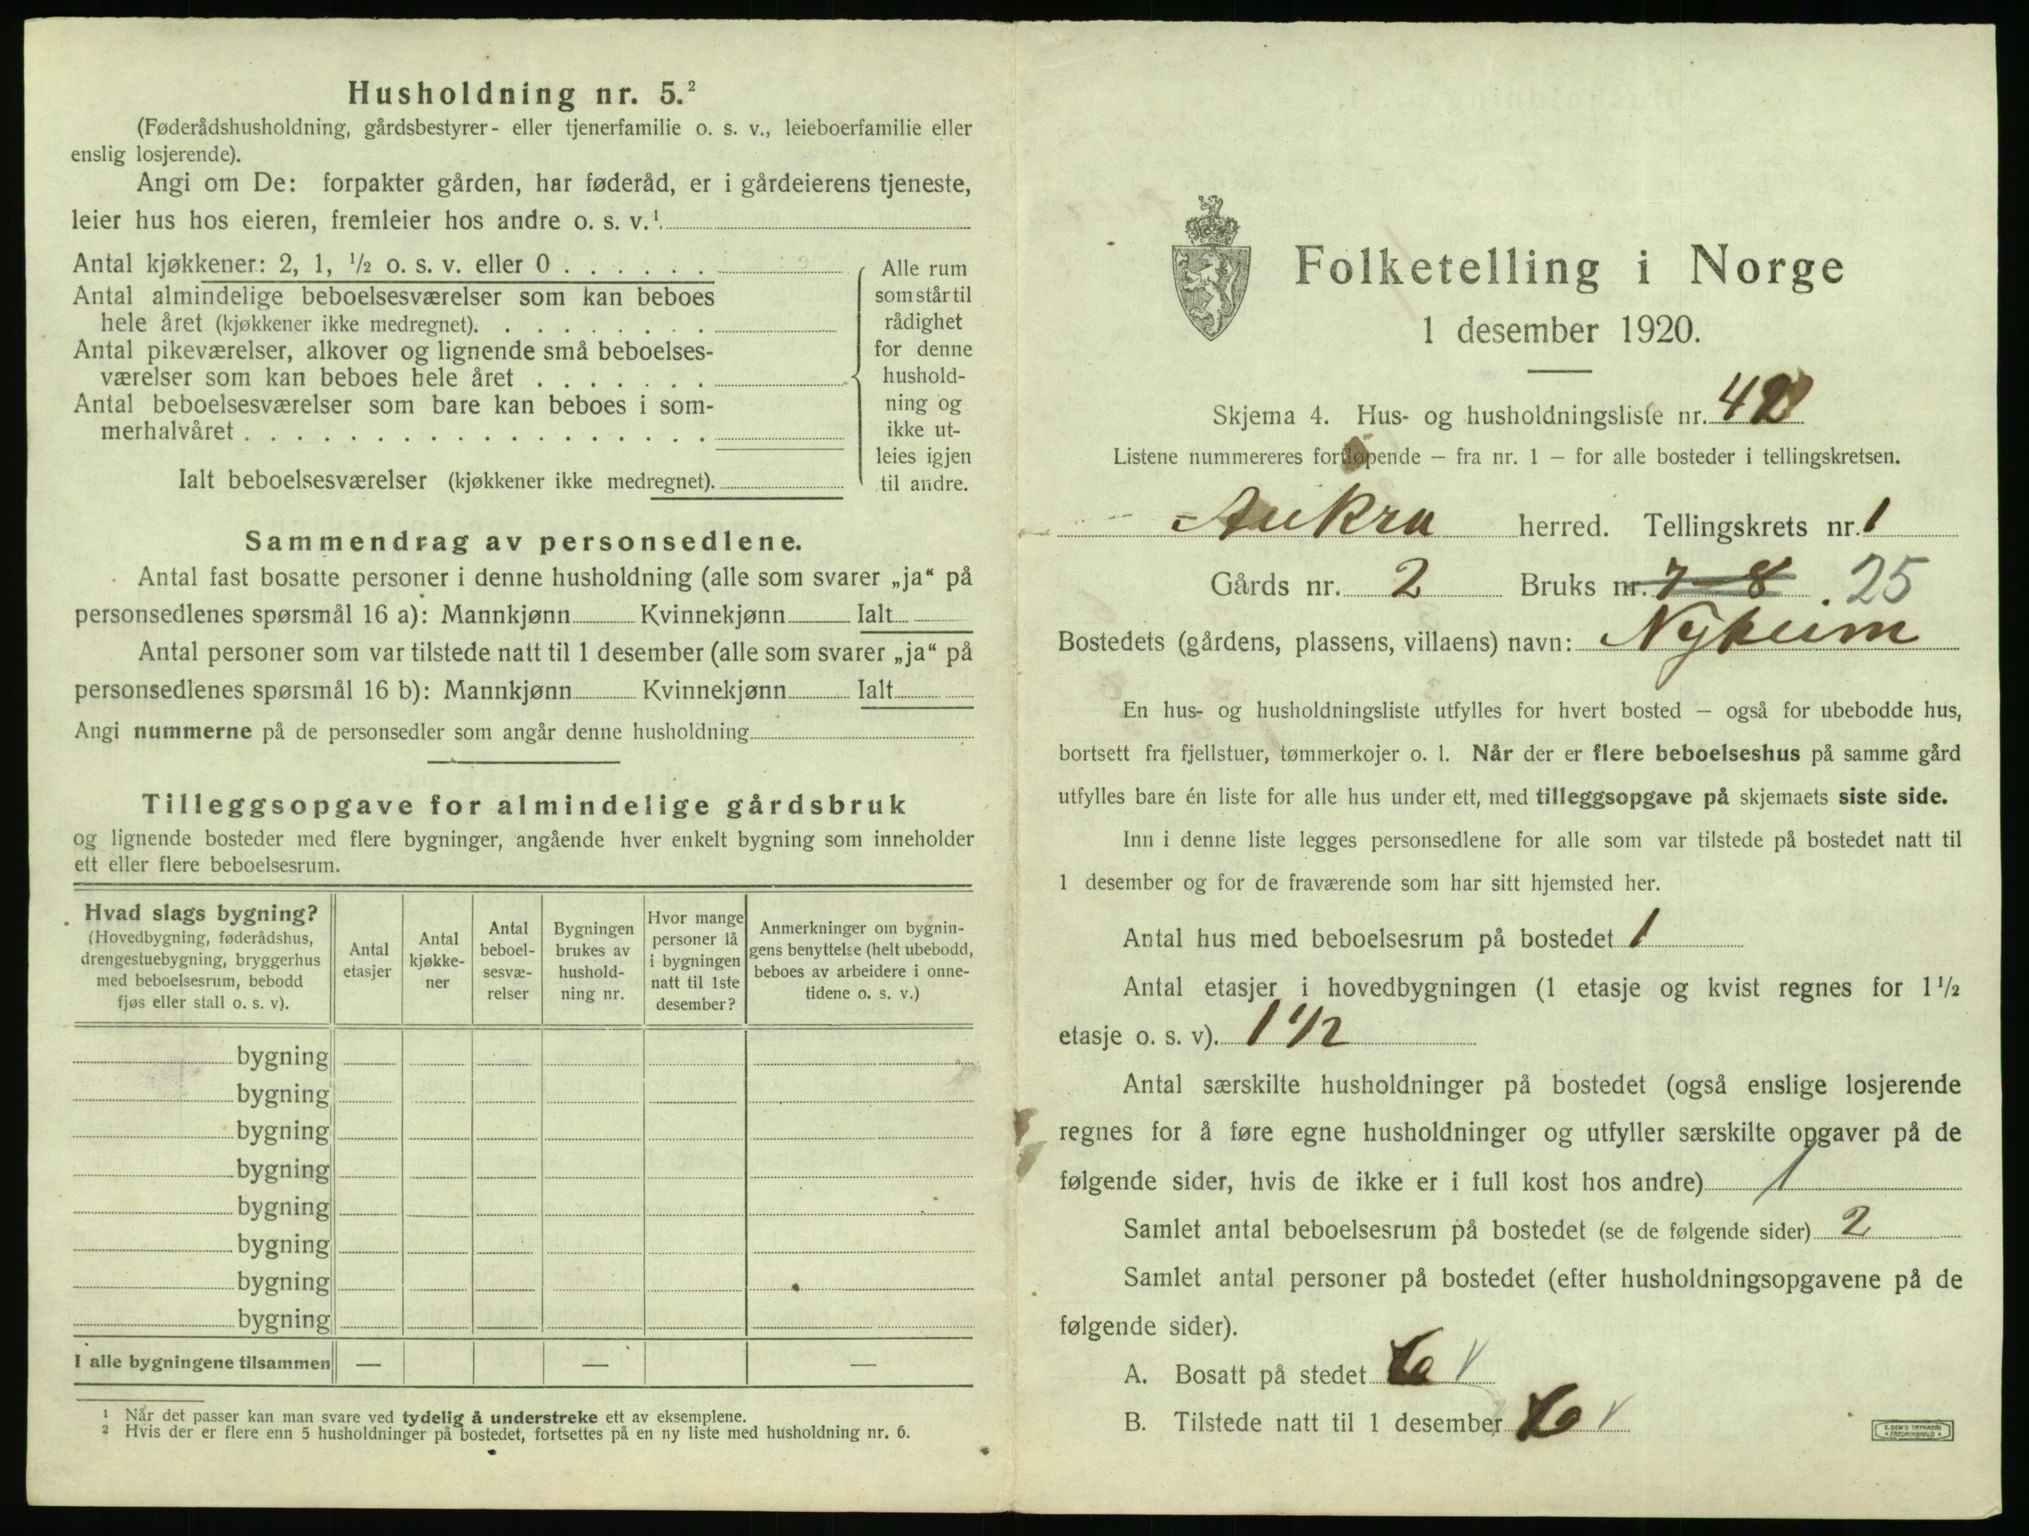 Husholdning nr. 5.²
(Føderådshusholdning, gårdsbestyrer- eller tjenerfamilie o. s. v., leieboerfamilie eller
enslig losjerende).
Angi om De: forpakter gården, har føderåd, er i gårdeierens tjeneste,
leier hus hos eieren, fremleier hos andre o. s. v.¹
Antal kjøkkener: 2, 1, ½ o. s. v. eller 0
Antal almindelige beboelsesværelser som kan beboes
hele året (kjøkkener ikke medregnet).
Antal pikeværelser, alkover og lignende små beboelses-
værelser som kan beboes hele året
Antal beboelsesværelser som bare kan beboes i som-
merhalvåret
Ialt beboelsesværelser (kjøkkener ikke medregnet).
Alle rum
som står til
rådighet
for denne
hushold-
ning og
ikke ut-
leies igjen
til andre.
Sammendrag av personsedlene.
Antal fast bosatte personer i denne husholdning (alle som svarer „ja“ på
personsedlenes spørsmål 16 a): Mannkjønn Kvinnekjønn Ialt
Antal personer som var tilstede natt til 1 desember (alle som svarer „ja“ på
personsedlenes spørsmål 16 b): Mannkjønn Kvinnekjønn Ialt
Angi nummerne på de personsedler som angår denne husholdning
Tilleggsopgave for almindelige gårdsbruk
og lignende bosteder med flere bygninger, angående hver enkelt bygning som inneholder
ett eller flere beboelsesrum.
Hvad slags bygning?
(Hovedbygning, føderådshus,
drengestuebygning, bryggerhus
med beboelsesrum, bebodd
fjøs eller stall o. s. v).
Antal
etasjer
Antal
kjøkke-
ner
Antal
beboel-
sesvæ-
relser
Bygningen
brukes av
hushold-
ning nr.
Hvor mange
personer lå
i bygningen
natt til 1ste
desember?
Anmerkninger om bygnin-
gens benyttelse (helt ubebodd,
beboes av arbeidere i onne-
tidene o. s. v.)
bygning
bygning
bygning
bygning
bygning
bygning
bygning
bygning
I alle bygningene tilsammen — — —
¹ Når det passer kan man svare ved tydelig å understreke ett av eksemplene.
² Hvis der er flere enn 5 husholdninger på bostedet, fortsettes på en ny liste med husholdning nr. 6.
Folketelling i Norge
1 desember 1920.
Skjema 4. Hus- og husholdningsliste nr. 42
Listene nummereres fortløpende – fra nr. 1 – for alle bosteder i tellingskretsen.
Aukra herred. Tellingskrets nr. 1
Gårds nr. 2 Bruks nr. 7-8 . 25
Bostedets (gårdens, plassens, villaens) navn: Nyheim
En hus- og husholdningsliste utfylles for hvert bosted – også for ubebodde hus,
bortsett fra fjellstuer, tømmerkojer o. l. Når der er flere beboelseshus på samme gård
utfylles bare én liste for alle hus under ett, med tilleggsopgave på skjemaets siste side.
Inn i denne liste legges personsedlene for alle som var tilstede på bostedet natt til
1 desember og for de fraværende som har sitt hjemsted her.
Antal hus med beboelsesrum på bostedet 1
Antal etasjer i hovedbygningen (1 etasje og kvist regnes for 1½
etasje o. s. v). 1 1/2
Antal særskilte husholdninger på bostedet (også enslige losjerende
regnes for å føre egne husholdninger og utfyller særskilte opgaver på de
følgende sider, hvis de ikke er i full kost hos andre) 1
Samlet antal beboelsesrum på bostedet (se de følgende sider) 2
Samlet antal personer på bostedet (efter husholdningsopgavene på de
følgende sider).
A. Bosatt på stedet 6 V
B. Tilstede natt til 1 desember 6 V
E. SEM'S TRYKKERI
FREDRIKSHALD